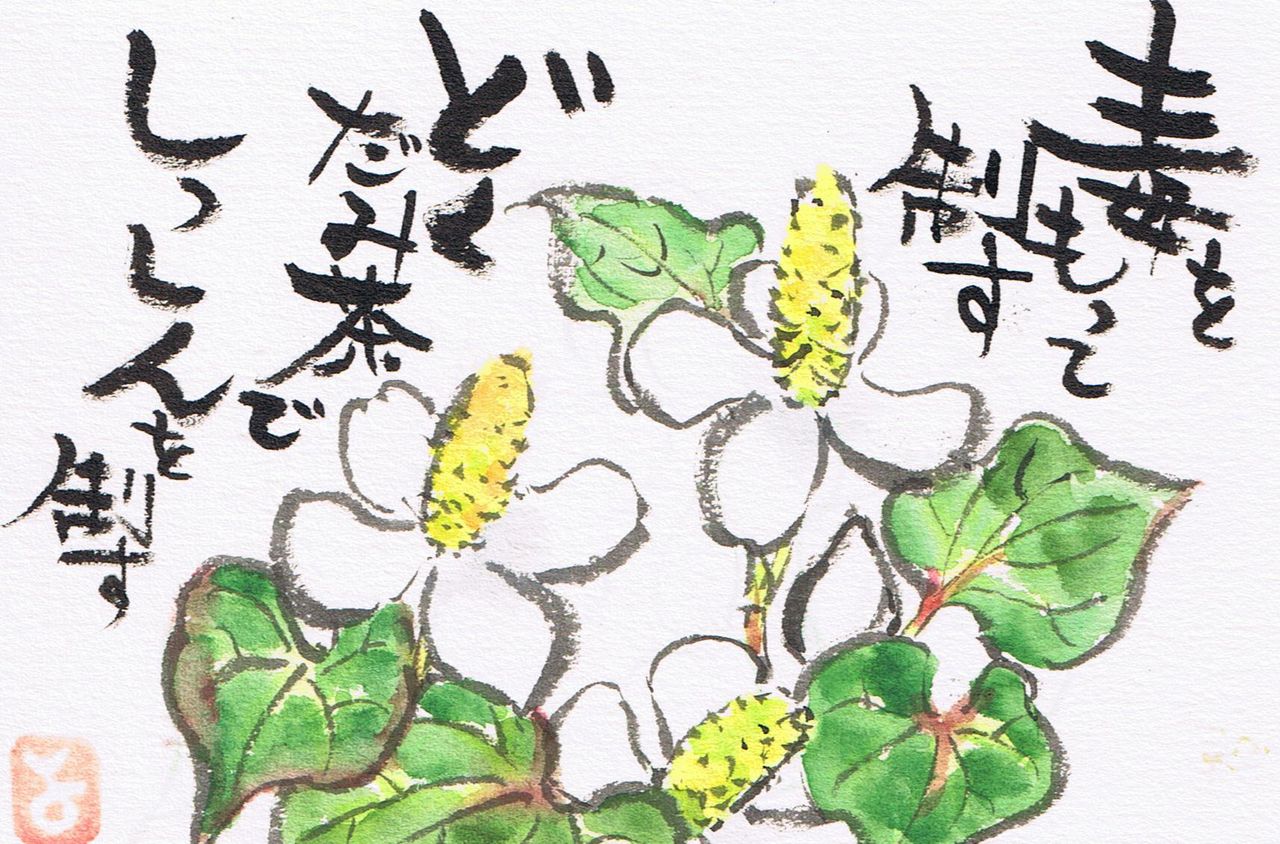 毒を
もって
制す
どく
だみ茶
で
しっしんを
制す
よ